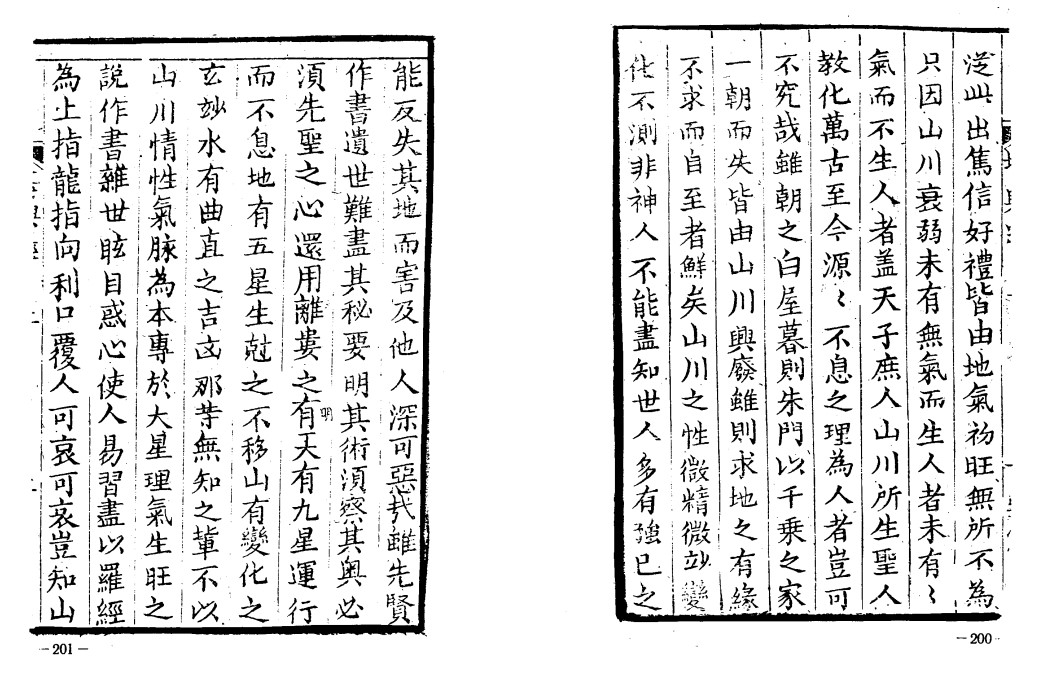 湴此出篤信好禮皆由地氣初旺無所不為
只因山川衰弱未有無氣而生人者未有〻
氣而不生人者盖天子庶人山川所生聖人
教化萬古至今源〻不息之理為人者豈可
不究哉雖朝之白屋暮則朱門以千乗之家
一朝而失皆由山川興廢雖則求地之有緣
不求而自至者鮮矣山川之性微精微玅變
化不測非神人不能盡知世人多有強已之
—200—
能反失其地而害及他人深可惡㢤雖先賢
作書遺世難盡其秘要明其術湏察其奥必
湏先聖之心還用離婁之明有天有九星運行
而不息地有五星生尅之不移山有變化之
玄妙水有曲直之吉凶那等無知之軰不以
山川情性氣脉為本專於大星理氣生旺之
說作書雜世眩目惑心使人易習盡以羅經
為上指龍指向利口覆人可哀可哀豈知山
—201—